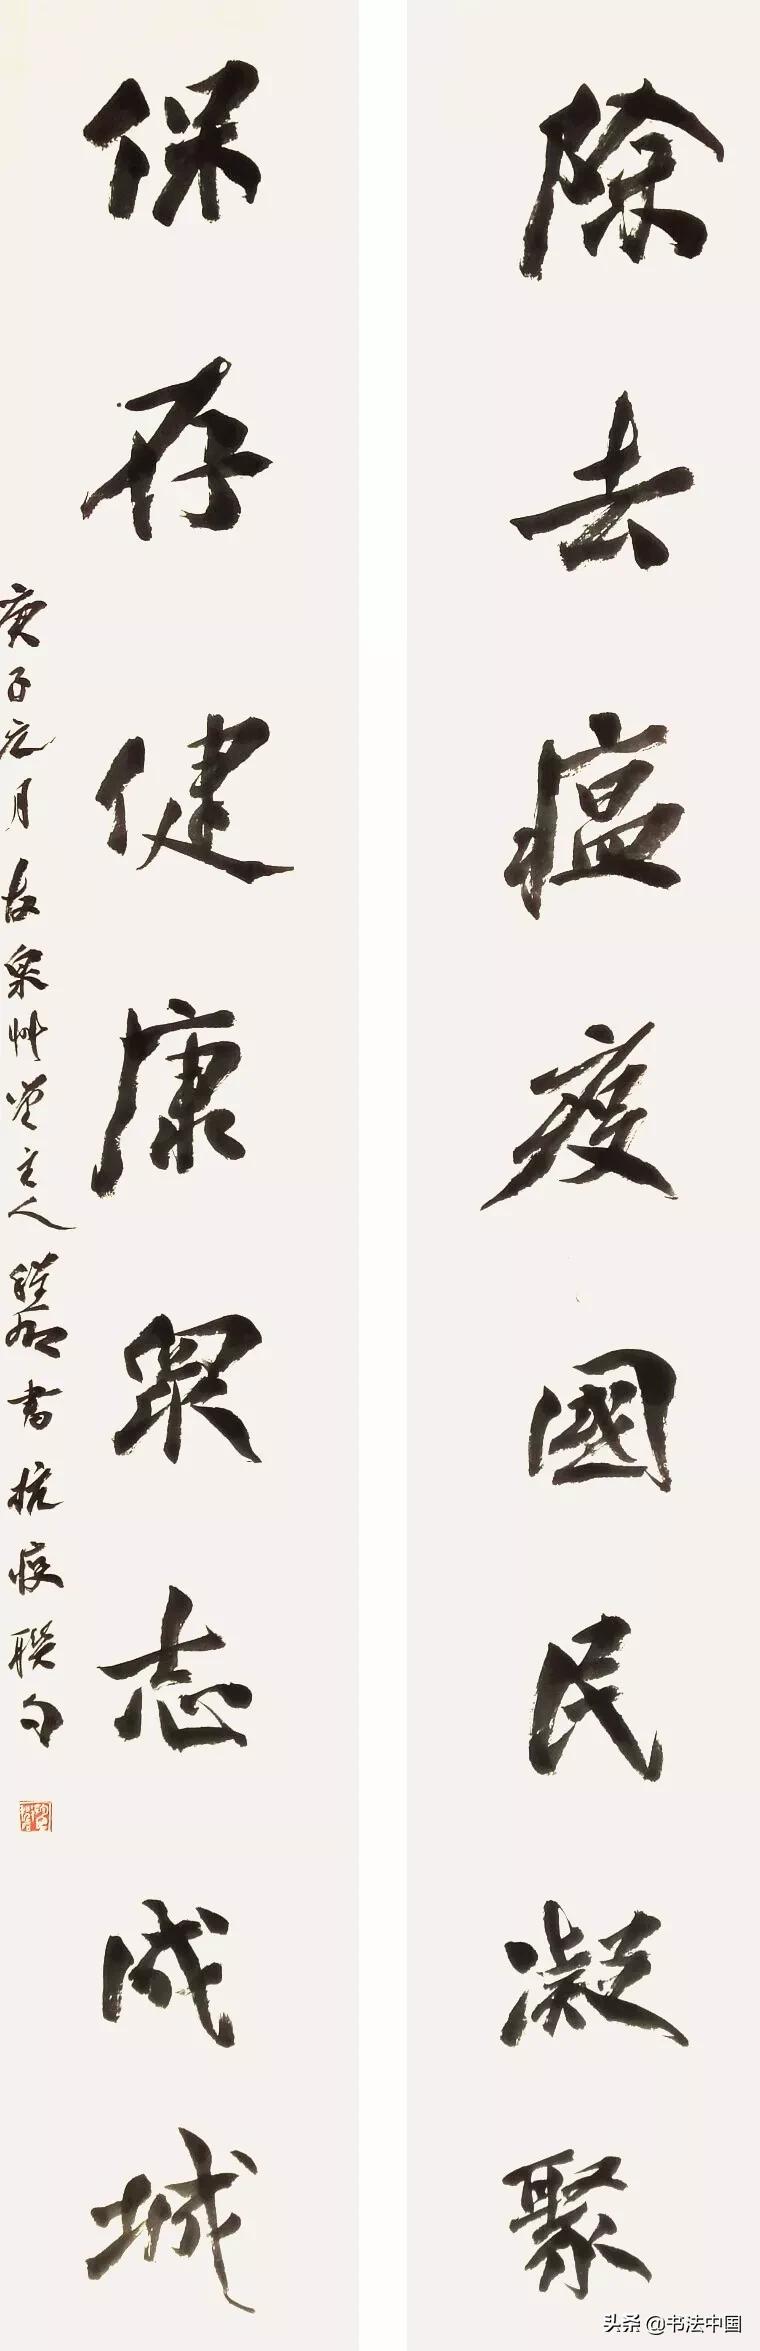 除去瘟疫國民凝聚
保存健康眾志成城
庚子元月 故泉艸堂主人 書抗疫聯句
头条 @书法中国